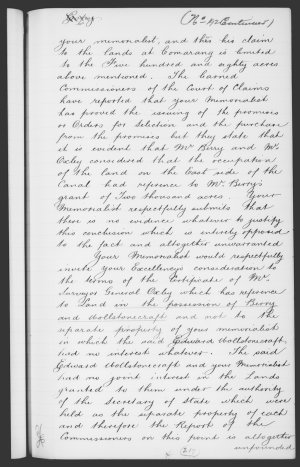 (No 4 Continued)
your memorialist, and this his claim
to the lands at Comarang is limited
to the Five hundred and eighty acres
above mentioned. The learned
Commissioners of the Court of Claims
have reported that your Memorialist
has proved the issuing of the promises
or Orders for selection and the purchase
from the promisees but they state that
it is evident that Mr Berry and Mr
Oxley considered that the occupation
of the land on the East side of the
Canal had reference to Mr Berry's
grant of Two thousand acres. Your
Memorialist respectfully submits that
there is no evidence whatever to justify
this conclusion which is entirely opposed
to the fact and altogether unwarranted
Your Memorialist would respectfully
invite your Excellency's consideration to
the terms of the Certificate of Mr
Surveyor General Oxley which has reference
to Land in the possession of Berry
and Wollstonecraft and not to the
separate property of your memorialist
in which the said Edward Wollstonecraft,
had no interest whatever. The said
Edward Wollstonecraft and your Memorialist
had no joint interest in the Lands
granted to them under the authority
of the Secretary of State which were
held as the separate property of each
and therefore the Report of the
Commissioners on this point is altogether
unfounded